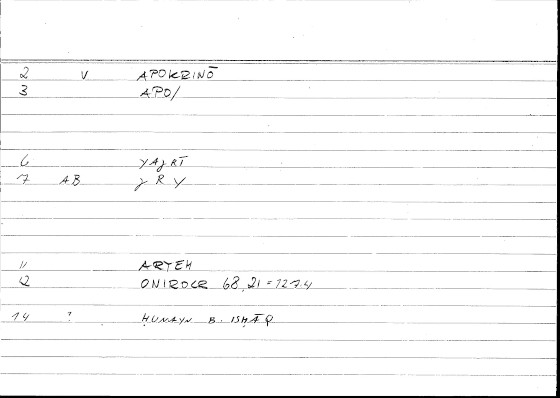 2 V APOKRINŌ
3 APO/
6 YAǧRĪ
7 AB ǧ R Y
11 ARTEM
12 ONIROCR 68,21 = 127.4
14 ? ḤUNAYN B. ISḤĀQ